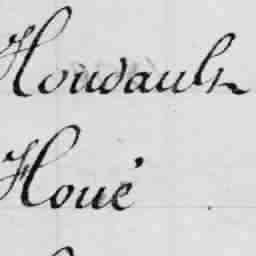 Houdault
Houé